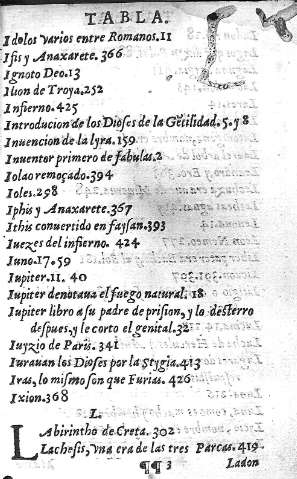 TABLA.
Idolos varios entre Romanos.11
Isis y Anaxarete.366
Ignoto Deo.13
Ilion de Troya.252
Infierno.425
Introducion de los Dioses de la Gẽtilidad.5.y 8
Inuencion de la lyra.159
Inuentor primero de fabulas.2
Iolao remoçado.394
Ioles.298
Iphis y Anaxarete.367
Ithis conuertido en faysan.393
Iuezes del infierno. 424
Iuno.17.59
Iupiter.11. 40
Iupiter denotaua el fuego natural. 18
Iupiter libro a su padre de prision, y lo desterro
despues, y le corto el genital.32
Iuyzio de Paris.341
Iurauan los Dioses por la Stygia.413
Iras, lo mismo son que Furias. 426
Ixion.368
L.
LAbirintho de Creta. 302
Lachesis, vna era de las tres Parcas.419
¶¶ 3 Ladon